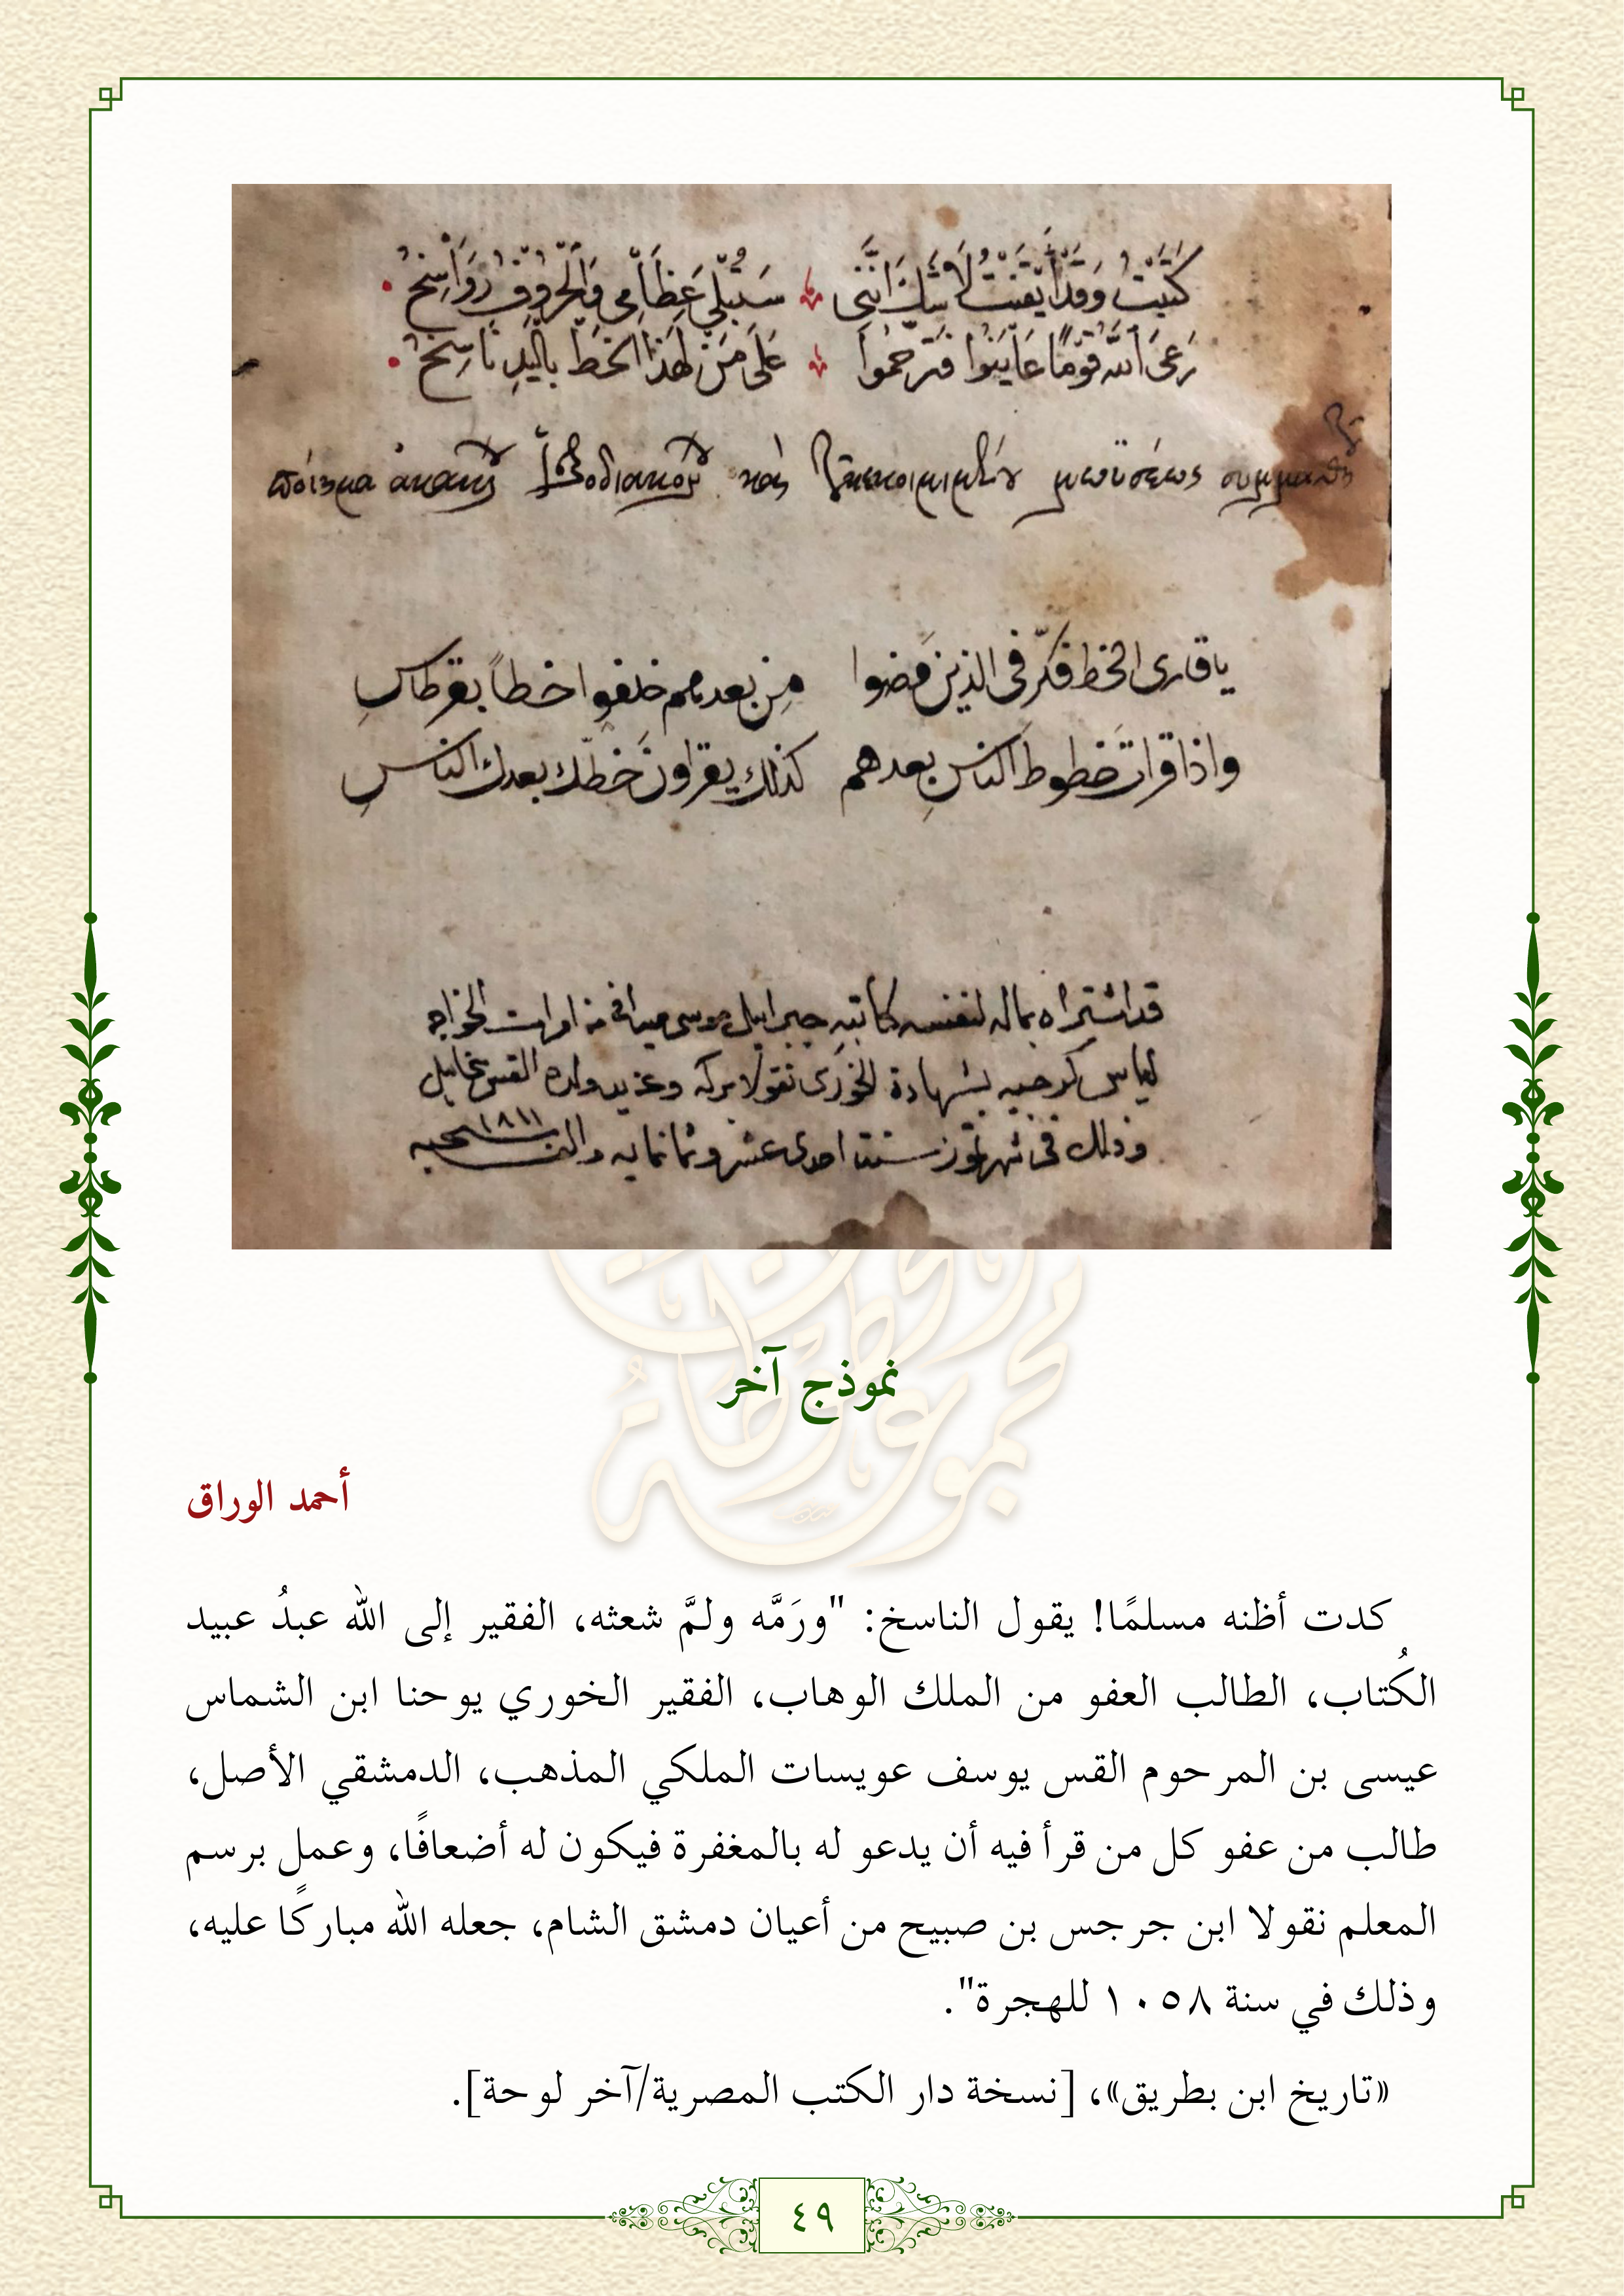 كَتَبْتُ وَقَدْ أَيْقَنْتُ لَا شَكَّ انَّنِي ستبلي عِظَامِي وَالْحُرُوفُ رَوَاسِخُ
رَعَى اللَّه قَوْمًا عَايَنُوا فَتَرَحَّمُوا عَلَى مَنْ لِهَذَا الخَطِّ بِالْيَدِ نَاسِخُ
ποίημα ἀκακίου καὶ μωϋσέως
ياقارى الخط فكّر فى الذين مضوا مِن بعدهم خلفوا خطاً بقرطاسِ
واذا قرات خطوط الناسِ بعدهم كذلك يقراون خطّك بعدك الناسِ
قد اشتراه بماله لنفسه كاتبه جبراييل موسى من الخواجه
الياس بشهادة الخورى نقولا وولده القس
وذلك فى شهر تموز سنة احدى عشر وثمانمايه والف ١٨١١
نموذج آخر
أحمد الوراق
كدت أظنه مسلمًا! يقول الناسخ: "ورَمَّه ولمَّ شعثه، الفقير إلى الله عبدُ عبيد
الكُتاب، الطالب العفو من الملك الوهاب، الفقير الخوري يوحنا ابن الشماس
عيسى بن المرحوم القس يوسف عويسات الملكي المذهب، الدمشقي الأصل،
طالب من عفو كل من قرأ فيه أن يدعو له بالمغفرة فيكون له أضعافًا، وعمل برسم
المعلم نقولا ابن جرجس بن صبيح من أعيان دمشق الشام، جعله الله مباركًا عليه،
وذلك في سنة ١٠٥٨ للهجرة".
«تاريخ ابن بطريق»، [نسخة دار الكتب المصرية/آخر لوحة].
٤٩